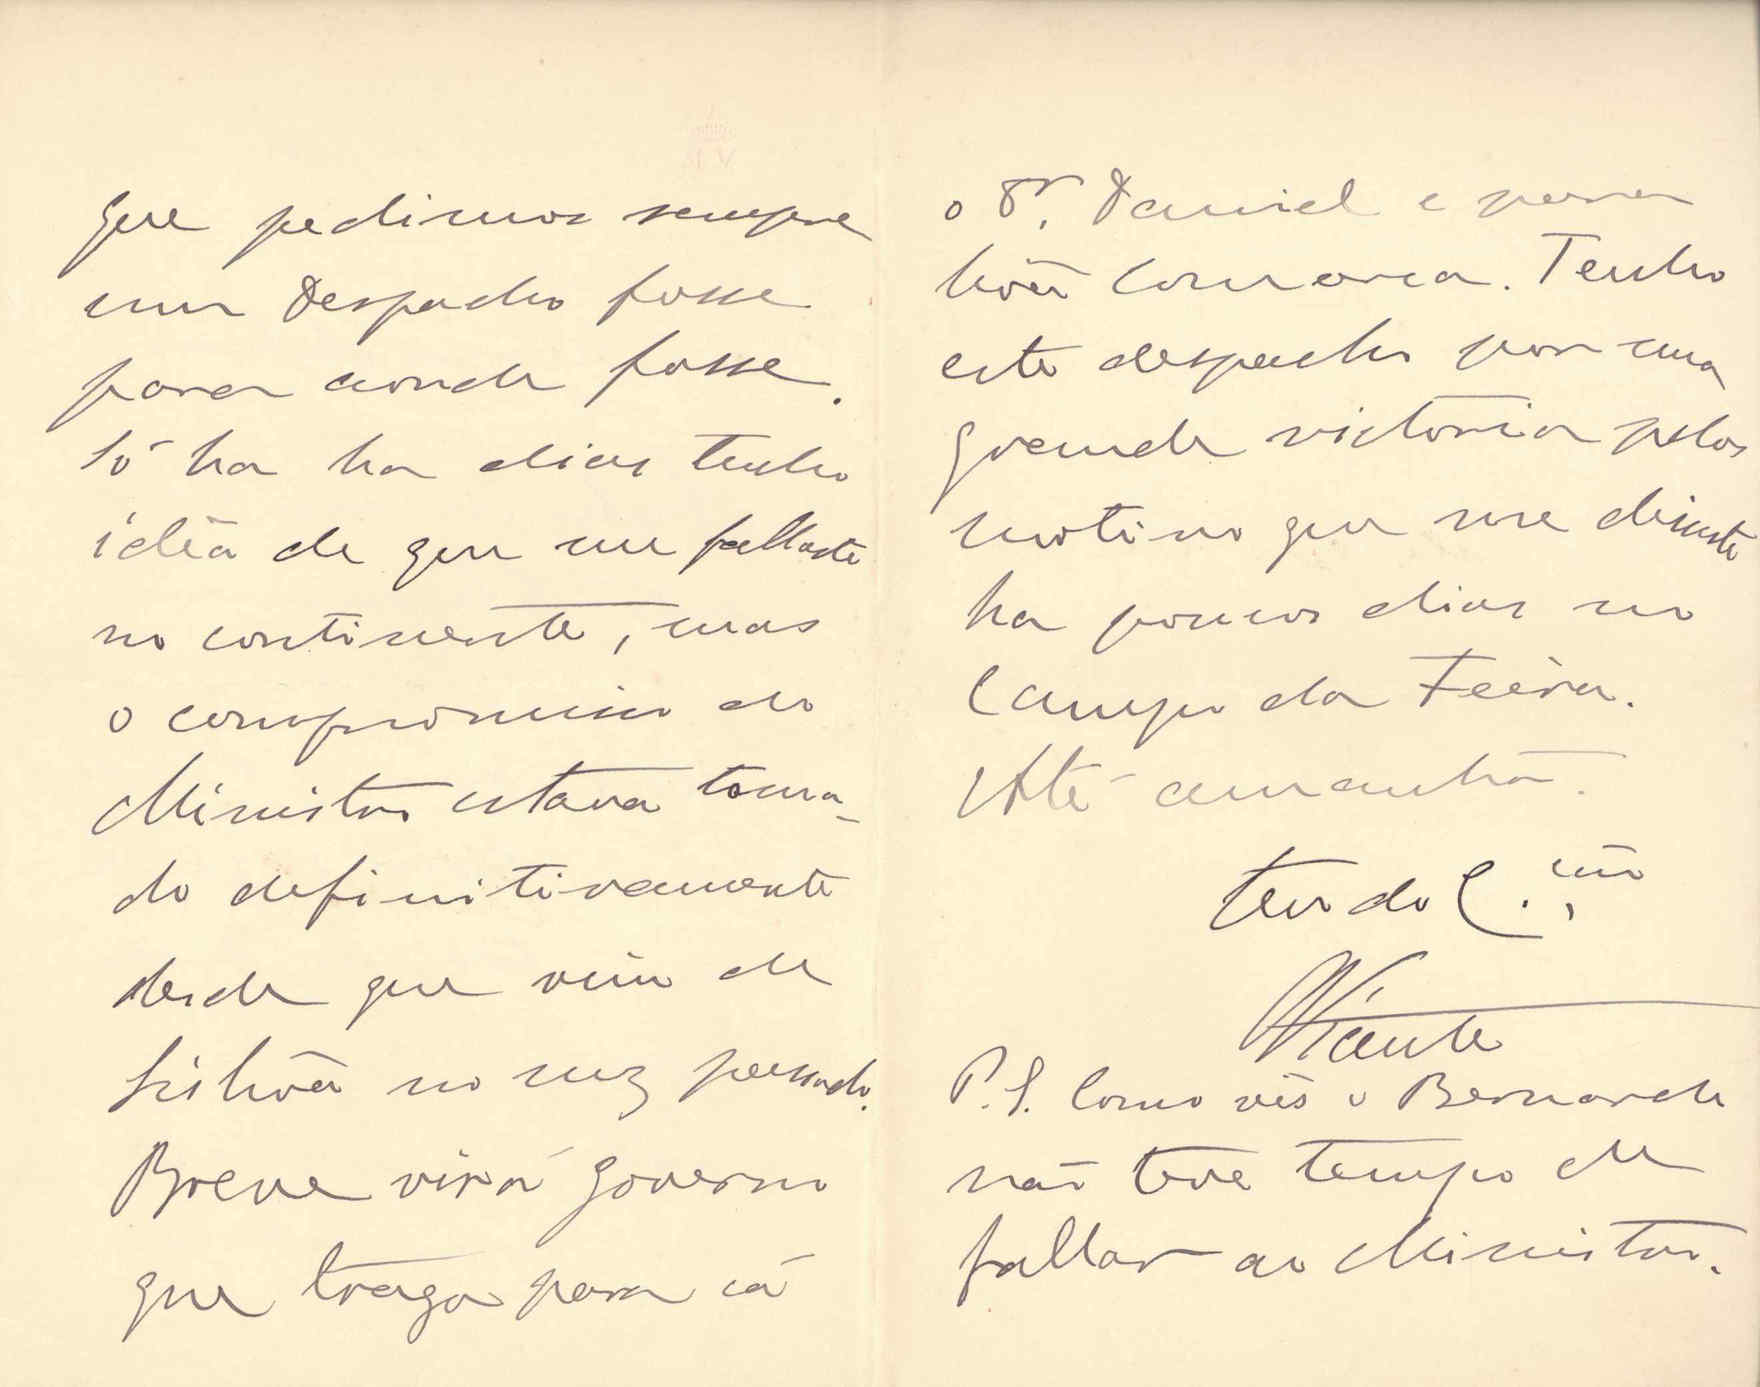 que pedimos sempre
um despacho fosse
para aonde fosse.
Só ha ha dias tenho
idêa de que me fallaste
no continente, mas
o compromisso do
Ministro estava toma-
do definitivamente
desde que vim de
Lisbôa no mez passado.
Breve virá governo
que traga para cá
o Dr. Daniel e para
bôa comarca. Tenho
este despacho por uma
grande victoria pelos
motivos que me disseste
ha poucos dias no
Campo da Feira.
Até amanhã.
Teu do C.
Vicente
P.S. Como vês o Bernardo
não teve tempo de
fallar ao Ministro.